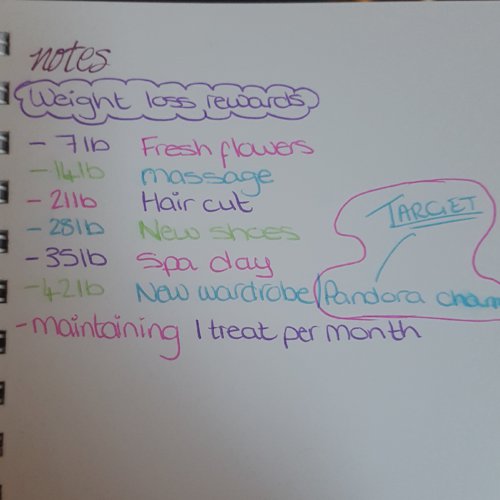 notes
Weight loss rewards
- 7lb Fresh flowers
- 14lb massage
- 21lb Hair cut
- 28lb New shoes
- 35lb Spa day
- 42lb New wardrobe/Pandora charm
TARGET
- maintaining 1 treat per month